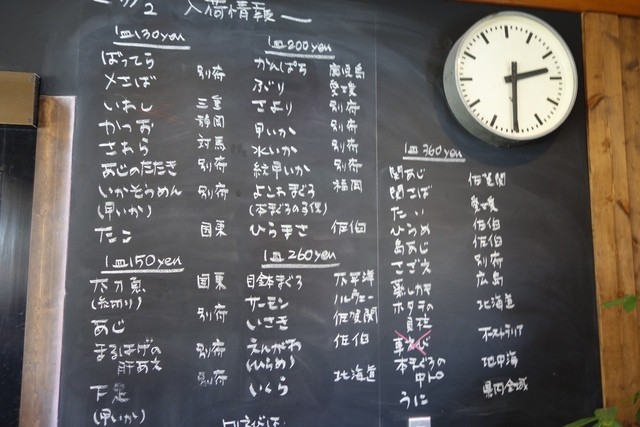 入荷情報
1皿130yen
ばってら
〆さば 別府
いわし 三重
かつお 静岡
さわら 対馬
あじのたたき 別府
いかそうめん 別府
(甲いか)
たこ 国東
1皿150yen
太刀魚 国東
(糸切り)
あじ 別府
まるはげの 別府
肝あえ
下足 別府
(甲いか)
1皿200yen
かんぱち 鹿児島
ぶり 愛媛
さより 別府
甲いか 別府
水いか 別府
紋甲いか 別府
よこわまぐろ 福岡
(本まぐろの子供)
ひらまさ 佐伯
1皿260yen
目鉢まぐろ 太平洋
サーモン ノルウェー
いさき 佐賀関
えんがわ 佐伯
(ひらめ)
いくら 北海道
1皿360yen
関あじ 佐賀関
関さば
たい 愛媛
ひらめ 佐伯
島あじ 佐伯
さざえ 別府
蒸しカキ 広島
ホタテの 北海道
貝柱
車えび オーストラリア
本まぐろの 地中海
中トロ
うに 県内全域